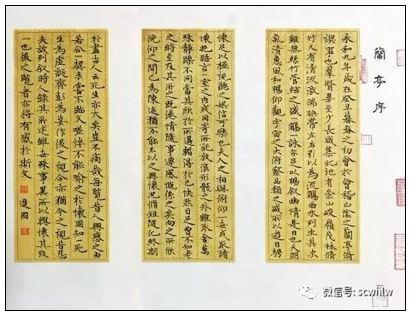 蘭亭序
永和九年歲在癸丑暮春之初會於會稽山陰之蘭亭脩
禊事也羣賢畢至少長咸集此地有崇山峻嶺茂林脩
竹又有清流激湍映帶左右引以為流觴曲水列坐其次
雖無絲竹管絃之盛一觴一詠亦足以暢敘幽情是日也天朗
氣清惠風和暢仰觀宇宙之大俯察品類之盛所以遊目騁
懷足以極視聽之娛信可樂也夫人之相與俯仰一世或取諸
懷抱晤言一室之內或因寄所託放浪形骸之外雖趣舍萬
殊靜躁不同當其欣於所遇輒得於己快然自足曾不知老
之將至及其所之既倦情隨事遷感慨係之矣向之所欣
俛仰之間已為陳迹猶不能不以之興懷況脩短隨化終期
於盡古人云死生亦大矣豈不痛哉每覽昔人興感之由
若合一契未嘗不臨文嗟悼不能喻之於懷固知一死
生為虛誕齊彭殤為妄作後之視今亦猶今之視昔悲
夫故列敘時人錄其所述雖世殊事異所以興懷其致
一也後之覽者亦將有感於斯文
微信号: scwhllw